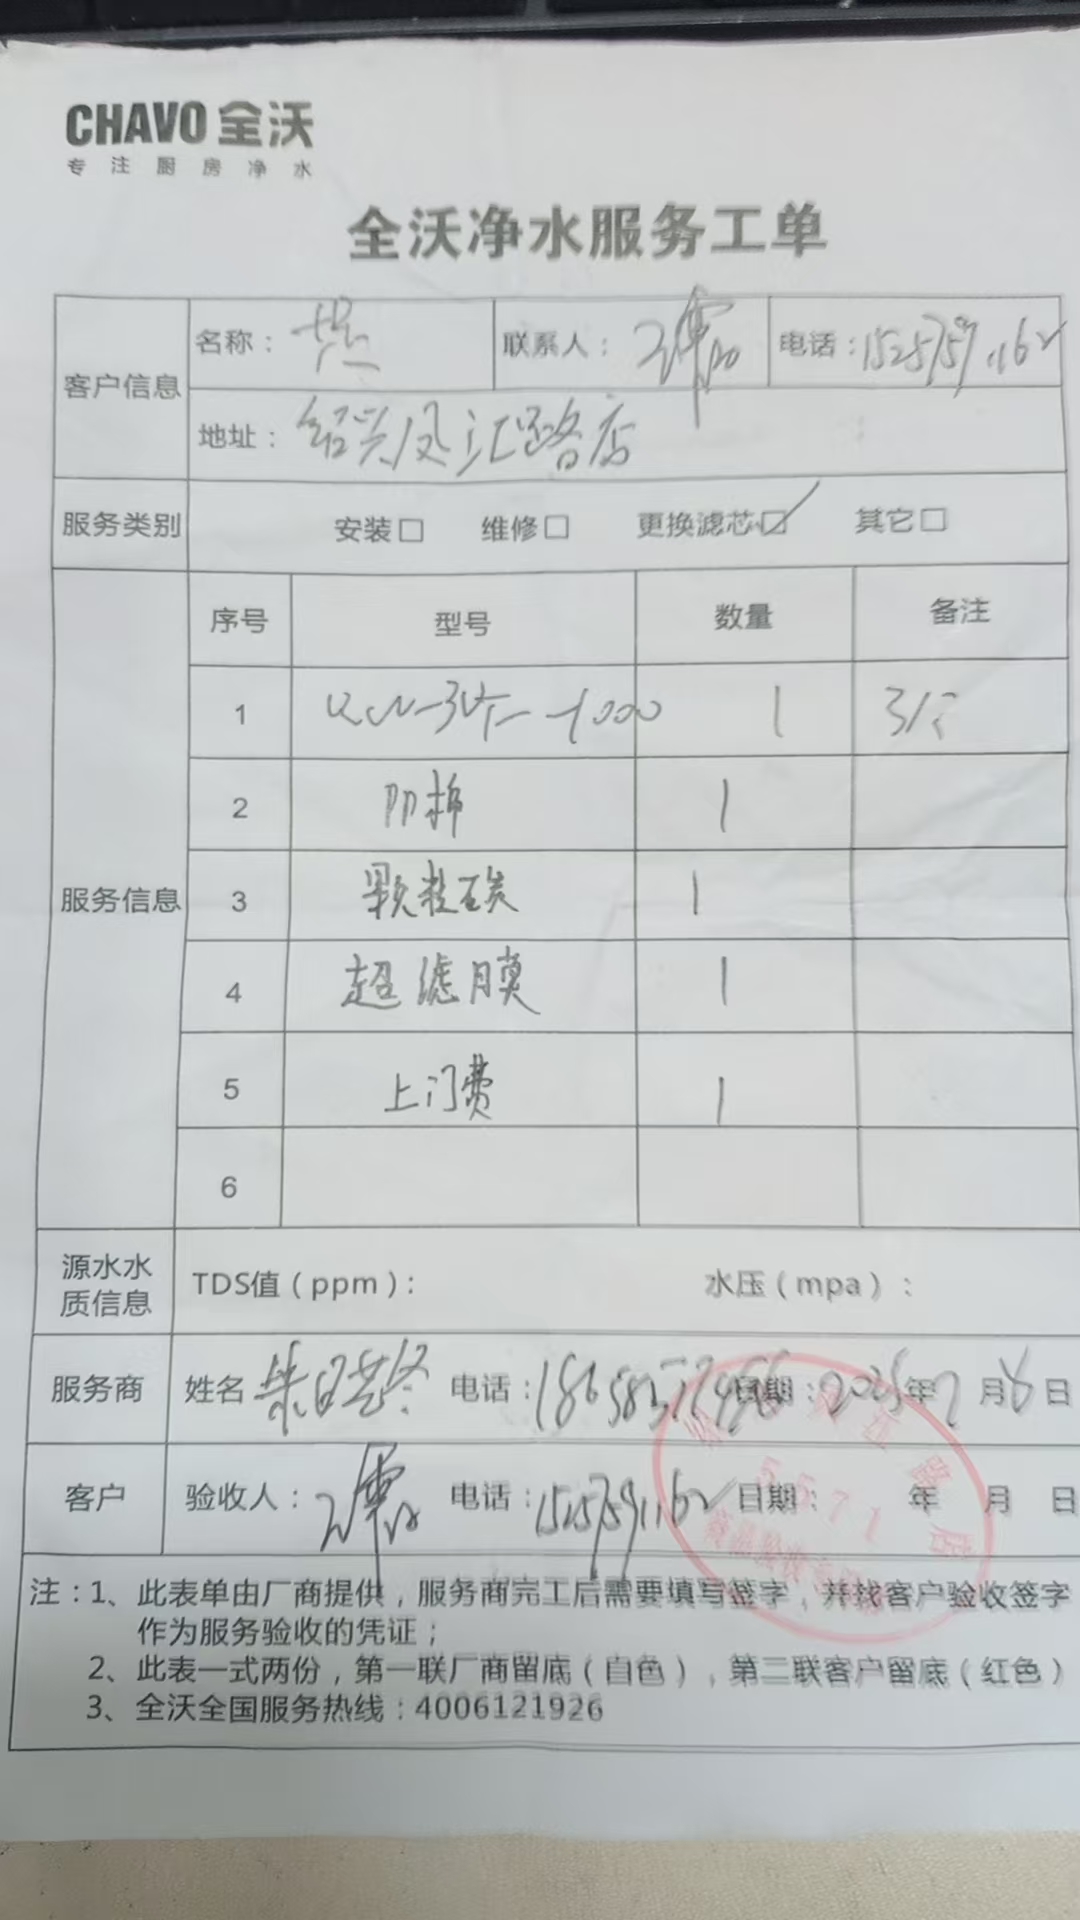 CHAVO 全沃
专注厨房净水
全沃净水服务工单
客户信息 名称： 联系人： 电话：
地址：绍兴凤汇路店
服务类别 安装□ 维修□ 更换滤芯☑ 其它□
服务信息 序号 型号 数量 备注
1 1
2 阳棉 1
3 颗粒碳 1
4 超滤膜 1
5 上门费 1
6
源水水质信息 TDS值（ppm）： 水压（mpa）：
服务商 姓名 电话： 日期：2025年7月8日
客户 验收人： 电话： 日期： 年 月 日
注：1、此表单由厂商提供，服务商完工后需要填写签字，并找客户验收签字
作为服务验收的凭证；
2、此表一式两份，第一联厂商留底（白色），第二联客户留底（红色）
3、全沃全国服务热线：4006121926